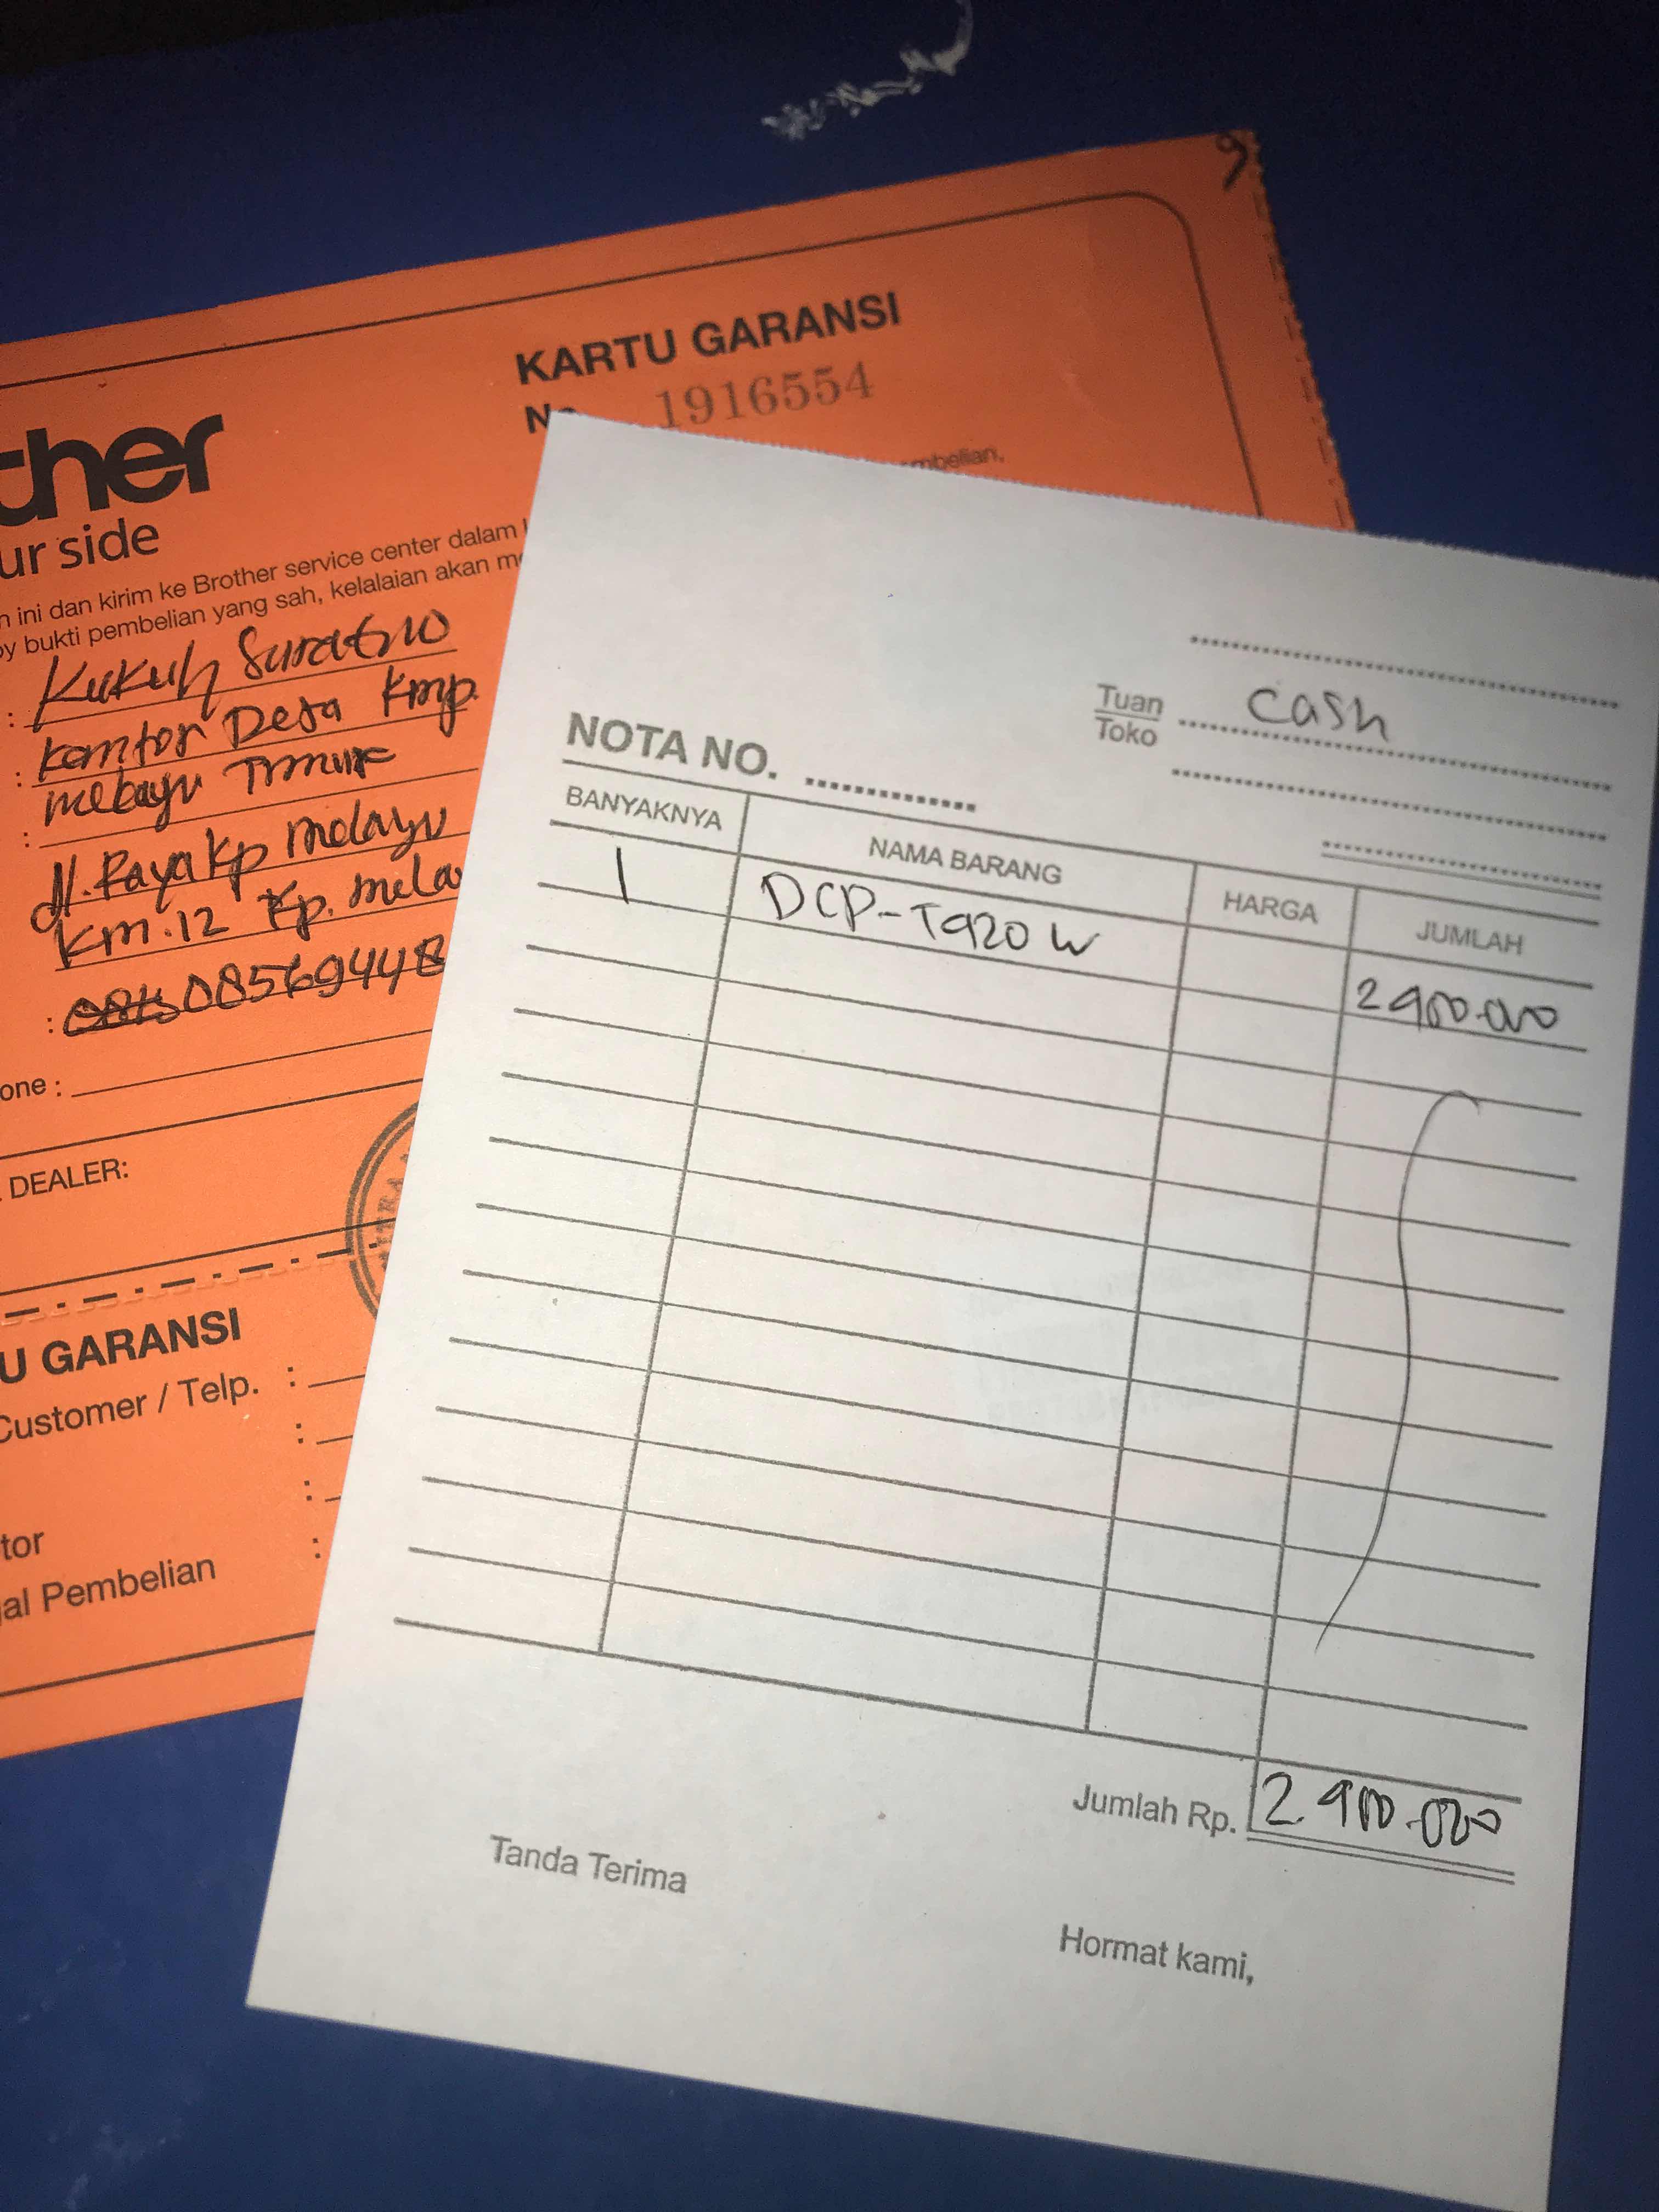 9
KARTU GARANSI
No 1916554
ther
ur side
mbelian,
n ini dan kirim ke Brother service center dalam
py bukti pembelian yang sah, kelalaian akan me
: Kukuh Suratno
: Kantor Desa Kmp.
melayu Timur
:
Jl. Raya Kp melayu
Km.12 Kp. mela
: 08569448
one :
DEALER:
U GARANSI
Customer / Telp. :
:
:
tor :
al Pembelian
Tuan
Toko
cash
NOTA NO.
BANYAKNYA NAMA BARANG HARGA JUMLAH
1 DCP-T920W 2900.000
Jumlah Rp. 2.900.000
Tanda Terima
Hormat kami,